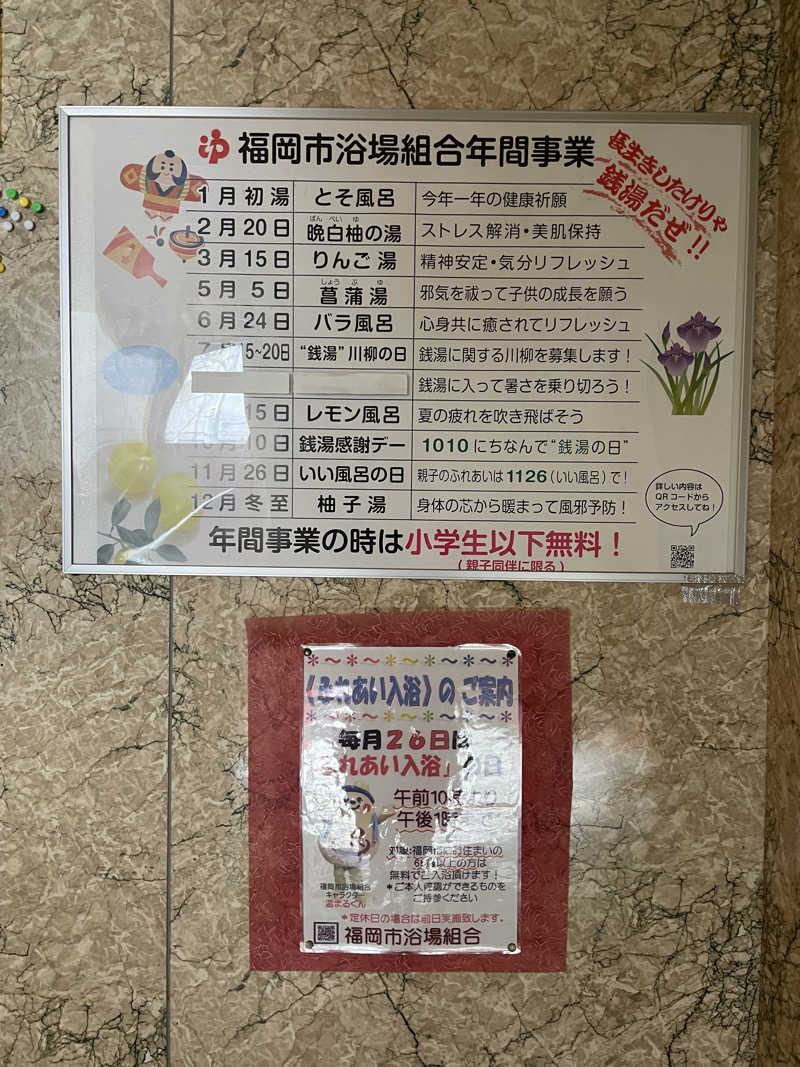 ゆ 福岡市浴場組合年間事業
長生きしたけりゃ
銭湯だぜ!!
1月初湯 とそ風呂 今年一年の健康祈願
2月20日 晩白柚の湯 ストレス解消・美肌保持
ばん ぺい ゆ
3月15日 りんご湯 精神安定・気分リフレッシュ
5月5日 菖蒲湯 邪気を祓って子供の成長を願う
しょう ぶ ゆ
6月24日 バラ風呂 心身共に癒されてリフレッシュ
7月15~20日 “銭湯”川柳の日 銭湯に関する川柳を募集します!
銭湯に入って暑さを乗り切ろう!
15日 レモン風呂 夏の疲れを吹き飛ばそう
10月10日 銭湯感謝デー 1010にちなんで“銭湯の日”
11月26日 いい風呂の日 親子のふれあいは1126(いい風呂)で!
12月冬至 柚子湯 身体の芯から暖まって風邪予防!
詳しい内容は
QRコードから
アクセスしてね!
年間事業の時は小学生以下無料!
(親子同伴に限る)
*~*~*~*~*~*
〈ふれあい入浴〉のご案内
*~*~*~*~*~*
毎月26日は
「ふれあい入浴」の日
午前10時より
午後1時
対象:福岡市にお住まいの
以上の方は
無料でご入浴頂けます!
*ご本人確認ができるものを
ご持参ください
福岡市浴場組合
キャラクター
温まるくん
*定休日の場合は前日実施致します。
福岡市浴場組合